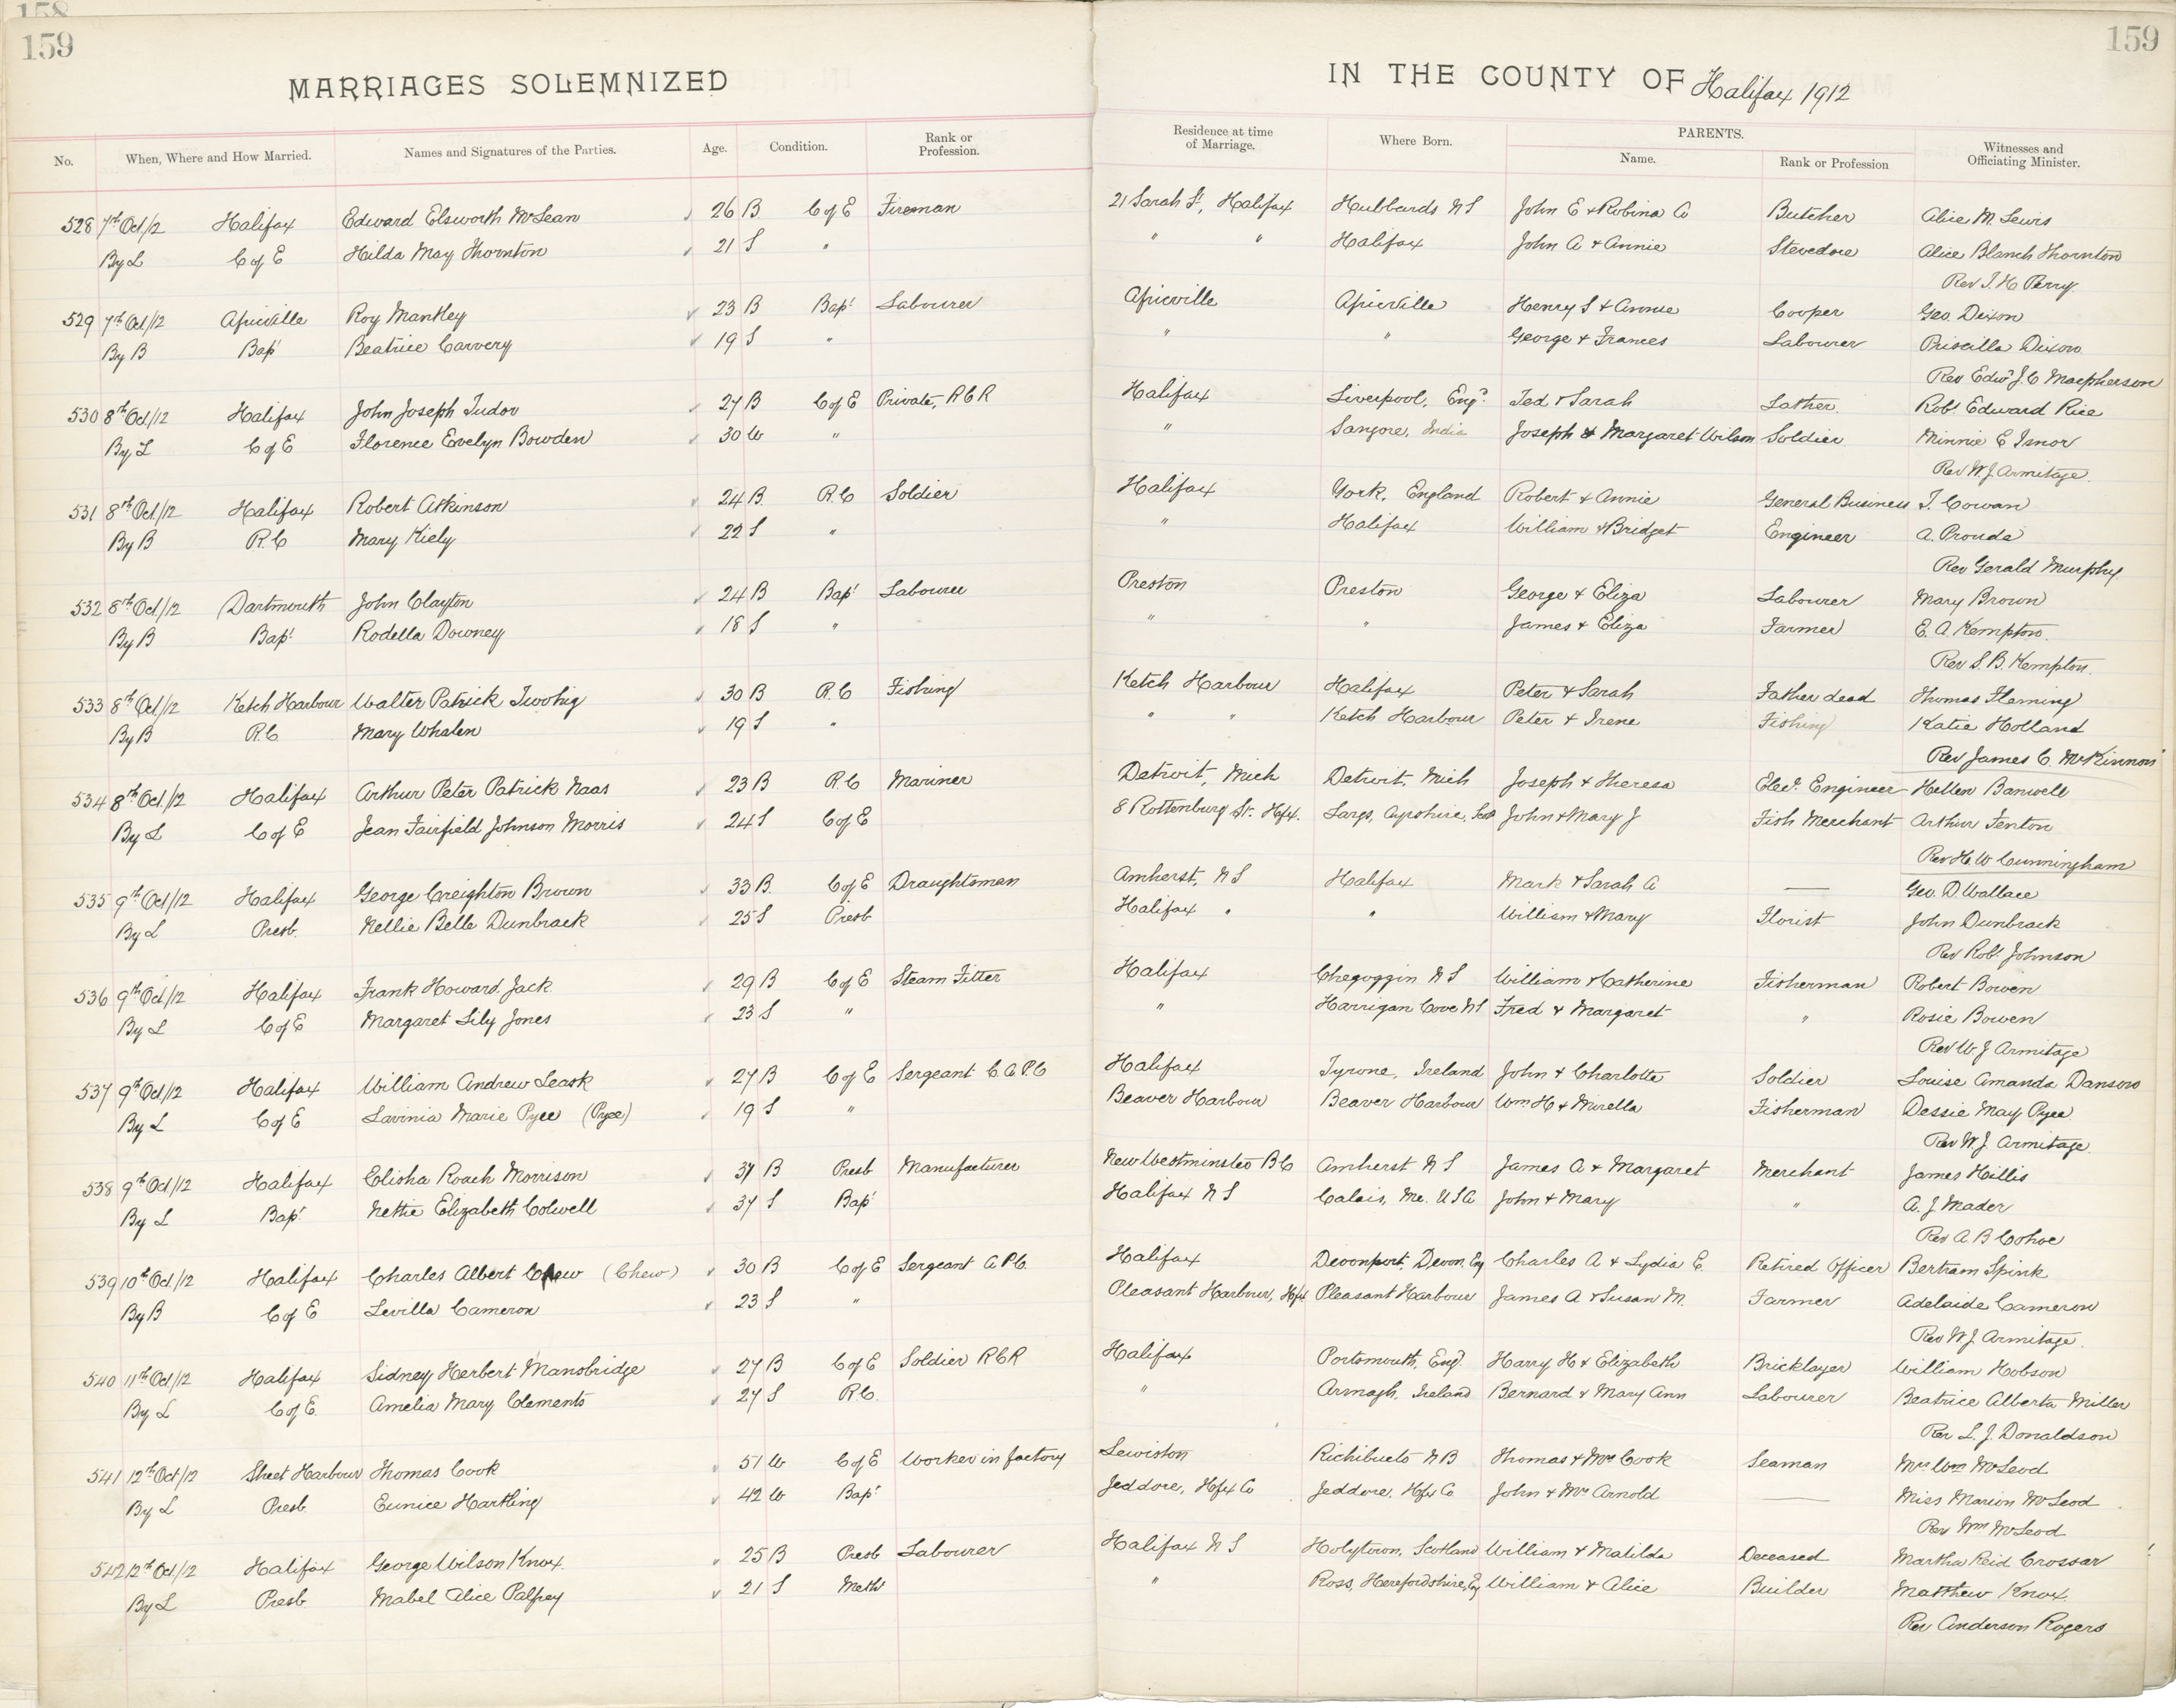 158
159
159
MARRIAGES SOLEMNIZED
IN THE COUNTY OF Halifax 1912
No. When, Where and How Married. Names and Signatures of the Parties. Age. Condition. Rank or Profession. Residence at time of Marriage. Where Born. PARENTS. Name. Rank or Profession Witnesses and Officiating Minister.
528 7th Oct/12 Halifax Edward Elsworth McLean 26 B C of E Fireman 21 Sarah St, Halifax Hubbards N S John E & Robina C Butcher Alice M. Lewis
By L C of E Hilda May Thornton 21 S " " " Halifax John A & Annie Stevedore Alice Blanch Thornton
Rev T. H. Perry
529 7th Oct/12 Africville Roy Mantley 23 B Bapt Labourer Africville Africville Henry S & Annie Cooper Geo. Dixon
By B Bapt Beatrice Carvery 19 S " " " George & Frances Labourer Priscilla Dixon
Rev Edwd J. C Macpherson
530 8th Oct/12 Halifax John Joseph Tudor 27 B C of E Private, R C R Halifax Liverpool, Engd. Ted & Sarah Lather Robt Edward Rice
By L C of E Florence Evelyn Bowden 30 W " " Sangore, India Joseph & Margaret Wilson Soldier Minnie E Isnor
Rev W. J. Armitage
531 8th Oct/12 Halifax Robert Atkinson 24 B. R. C Soldier Halifax York, England Robert & Annie General Business T. Cowan
By B R. C Mary Kiely 22 S " " Halifax William & Bridget Engineer A. Proude
Rev Gerald Murphy
532 8th Oct/12 Dartmouth John Clayton 24 B Bapt Labourer Preston Preston George & Eliza Labourer Mary Brown
By B Bapt Rodella Downey 18 S " " " James & Eliza Farmer E. A. Kempton.
Rev S. B. Kempton.
533 8th Oct/12 Ketch Harbour Walter Patrick Twohig 30 B R. C Fishing Ketch Harbour Halifax Peter & Sarah Father dead Thomas Fleming
By B R. C Mary Whalen 19 S " " " Ketch Harbour Peter & Irene Fishing Katie Holland
Rev James C. McKinnon
534 8th Oct/12 Halifax Arthur Peter Patrick Naas 23 B R. C Mariner Detroit, Mich Detroit, Mich Joseph & Theresa Elect. Engineer Hellen Banwell
By L C of E Jean Fairfield Johnson Morris 24 S C of E 8 Rottenburg St. Hfx. Largs, Ayrshire, Scot John & Mary J Fish Merchant Arthur Fenton
Rev H. W Cunningham
535 9th Oct/12 Halifax George Creighton Brown 33 B. C of E Draughtsman Amherst, N S Halifax Mark & Sarah A — Geo. D. Wallace
By L Presb. Nellie Belle Dunbrack 25 S Presb Halifax " " William & Mary Florist John Dunbrack
Rev Robt Johnson
536 9th Oct/12 Halifax Frank Howard Jack 29 B C of E Steam Fitter Halifax Chegoggin N S William & Catherine Fisherman Robert Bowen
By L C of E Margaret Lily Jones 23 S " " Harrigan Cove N S Fred & Margaret " Rosie Bowen
Rev W. J Armitage
537 9th Oct/12 Halifax William Andrew Leask 27 B C of E Sergeant C. A. P. C Halifax Tyrone, Ireland John & Charlotte Soldier Louise Amanda Danson
By L C of E Lavinia Marie Pyee (Pyee) 19 S " Beaver Harbour Beaver Harbour Wm H & Mirella Fisherman Dessie May Pyee
Rev W J Armitage
538 9th Oct/12 Halifax Elisha Roach Morrison 37 B Presb Manufacturer New Westminster B C Amherst N S James A & Margaret Merchant James Hillis
By L Bapt Nettie Elizabeth Colwell 37 S Bapt Halifax N S Calais, Me. U S A John & Mary " A. J Mader
Rev A B Cohoe
539 10th Oct/12 Halifax Charles Albert Chew (Chew) 30 B C of E Sergeant A P C. Halifax Devonport, Devon, Eng Charles A & Lydia E. Retired Officer Bertram Spink
By B C of E Levilla Cameron 23 S " Pleasant Harbour, Hfx Pleasant Harbour James A & Susan M. Farmer Adelaide Cameron
Rev W. J. Armitage
540 11th Oct/12 Halifax Sidney Herbert Mansbridge 27 B C of E Soldier R C R Halifax Portsmouth, Engd. Harry H & Elizabeth Bricklayer William Hobson
By L C of E. Amelia Mary Clements 27 S R. C. " Armagh, Ireland Bernard & Mary Ann Labourer Beatrice Alberta Miller
Rev L. J. Donaldson
541 12th Oct/12 Sheet Harbour Thomas Cook 51 W C of E Worker in factory Lewiston Richibucto N B Thomas & Mrs Cook Seaman Mrs Wm McLeod
By L Presb Eunice Hartling 42 W Bapt Jeddore, Hfx Co Jeddore, Hfx Co John & Mrs Arnold — Miss Marion McLeod
Rev Wm McLeod
542 12th Oct/12 Halifax George Wilson Knox. 25 B Presb Labourer Halifax N S Holytown, Scotland William & Matilda Deceased Martha Reid Crossar
By L Presb Mabel Alice Palfrey 21 S Meth " Ross, Herefordshire, Eng William & Alice Builder Matthew Knox
Rev Anderson Rogers